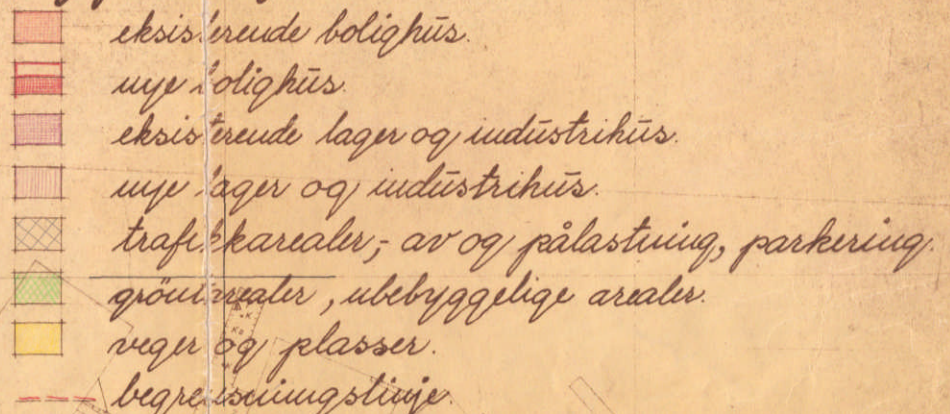 eksisterende bolighus.
nye bolighus.
eksisterende lager og industrihus.
nye lager og industrihus.
trafikkarealer,- av og pålastning, parkering.
gröntarealer, ubebyggelige arealer.
veger og plasser.
begrensningslinje.